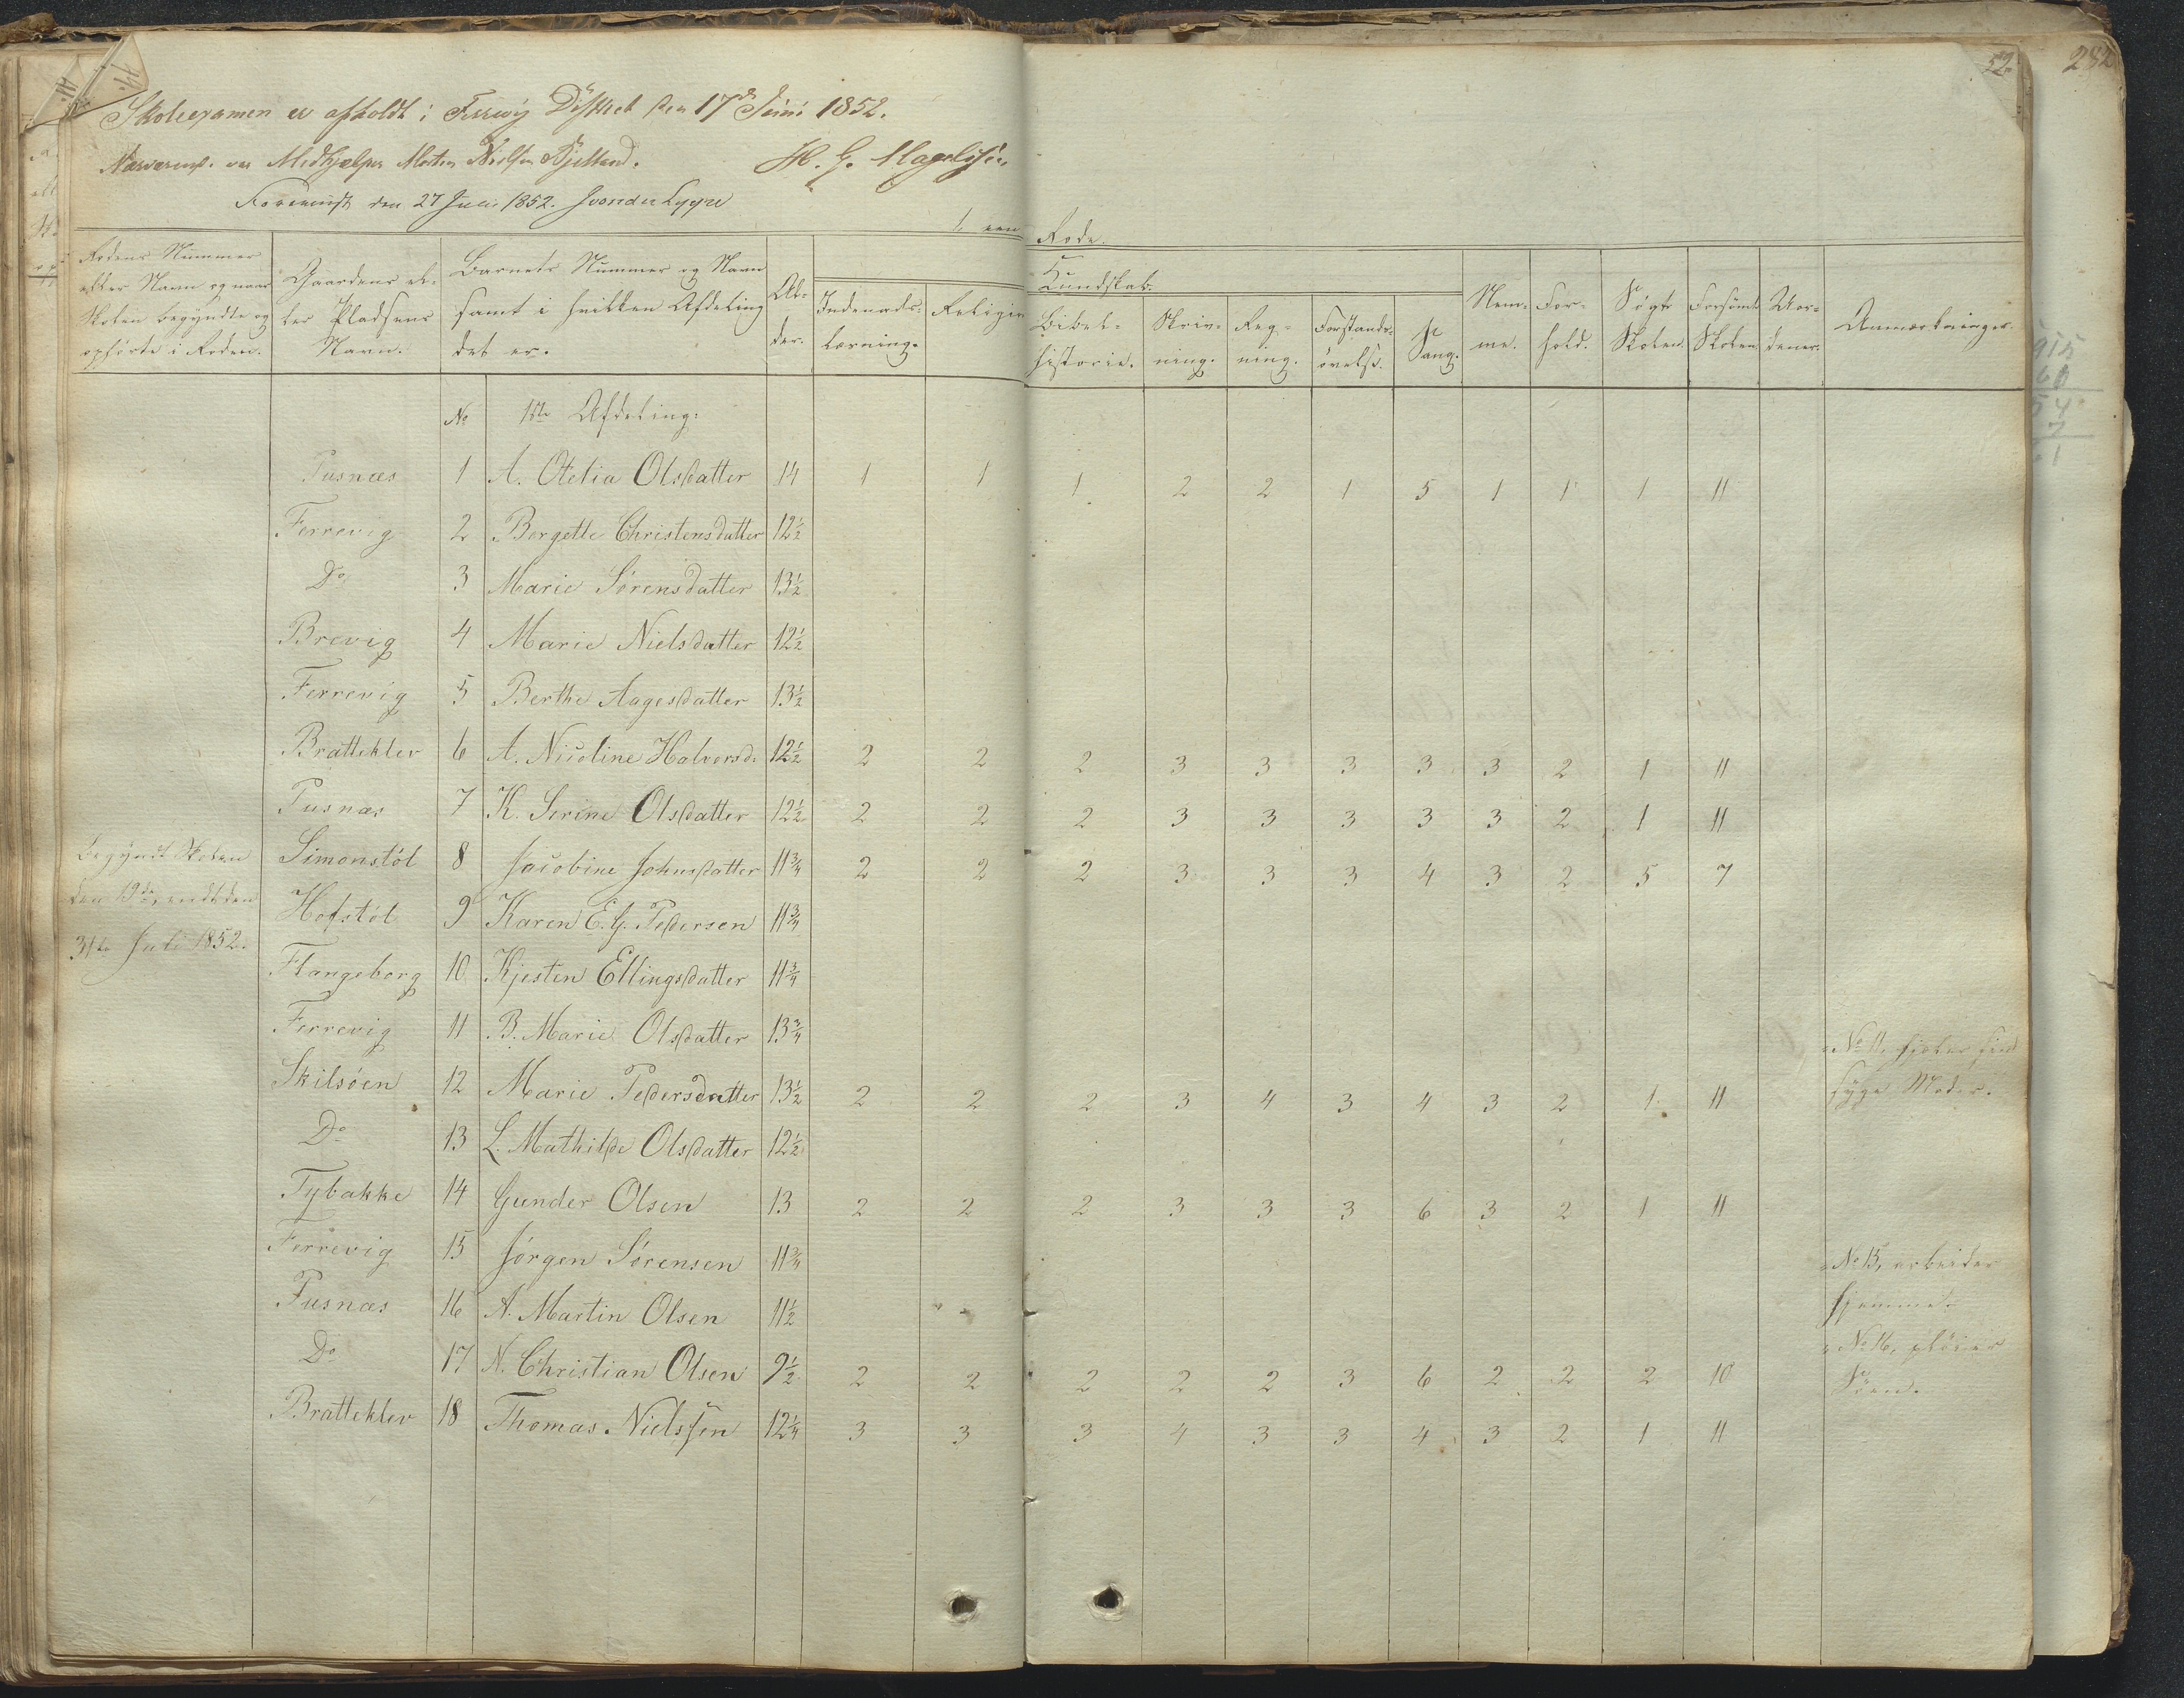 44.
52.
282
Skoleexamen er afholdt i Ferrvig District den 17de Juni 1852.
Nærværende var Medhjelper Morten Nielsen Bjelland. H. G. Magelssen
Foreviist den 27 Juli 1852. Svonder Lygre
1. een Rode.
Rodens Nummer eller Navn og naar Skolen begyndte og ophørte i Roden.
Gaardens eller Pladsens Navn.
Barnets Nummer og Navn samt i hvilken Afdeling det er.
Alder.
Kundskab.
Indenadslæsning. Religion Bibelhistorie. Skrivning. Regning. Forstandsøvelse. Sang.
Nemme. Forhold. Søgte Skolen. Forsømte Skolen. Anmærkninger.
No 1ste Afdeling:
Pusnæs 1 A. Otelia Olsdatter 14 1 1 1 2 2 1 5 1 1 1 11
Ferrevig 2 Borgette Christensdatter 12½
Do 3 Marie Sørensdatter 13½
Brevig 4 Marie Nielsdatter 12½
Ferrevig 5 Berthe Aagesdatter 13½
Bratteklev 6 A. Nicoline Halvorsd. 12½ 2 2 2 3 3 3 3 3 2 1 11
Pusnæs 7 K. Serine Olsdatter 12½ 2 2 2 3 3 3 3 3 2 1 11
Begyndt Skolen
den 19de, endt den
31te Juli 1852.
Simonstøl 8 Jacobine Johnsdatter 11¾ 2 2 2 3 3 3 4 3 2 5 7
Hofstøl 9 Karen E. G. Pedersen 11¾
Flangeborg 10 Kjesten Ellingsdatter 11¾
Ferrevig 11 B. Marie Olsdatter 13¾
No 11, hjelper sin
syge Moder.
Skilsøen 12 Marie Pedersdatter 13½ 2 2 2 3 4 3 4 3 2 1 11
Do 13 L. Mathilde Olsdatter 12½
Tybakke 14 Gunder Olsen 13 2 2 2 3 3 3 6 3 2 1 11
Ferrevig 15 Jørgen Sørensen 11¾
No 15, arbeider
hjemme.
Pusnæs 16 A. Martin Olsen 11½
No 16, pløier
Søen.
Do 17 N. Christian Olsen 9½ 2 2 2 2 2 3 6 2 2 2 10
Bratteklev 18 Thomas Nielssen 12¼ 3 3 3 4 3 3 4 3 2 1 11
915
60
54
7